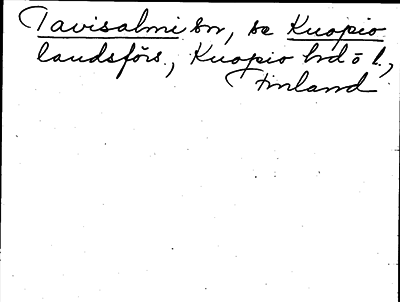 Tavisalmi sn, se Kuopio
landsförs., Kuopio hrd o l.,
Finland